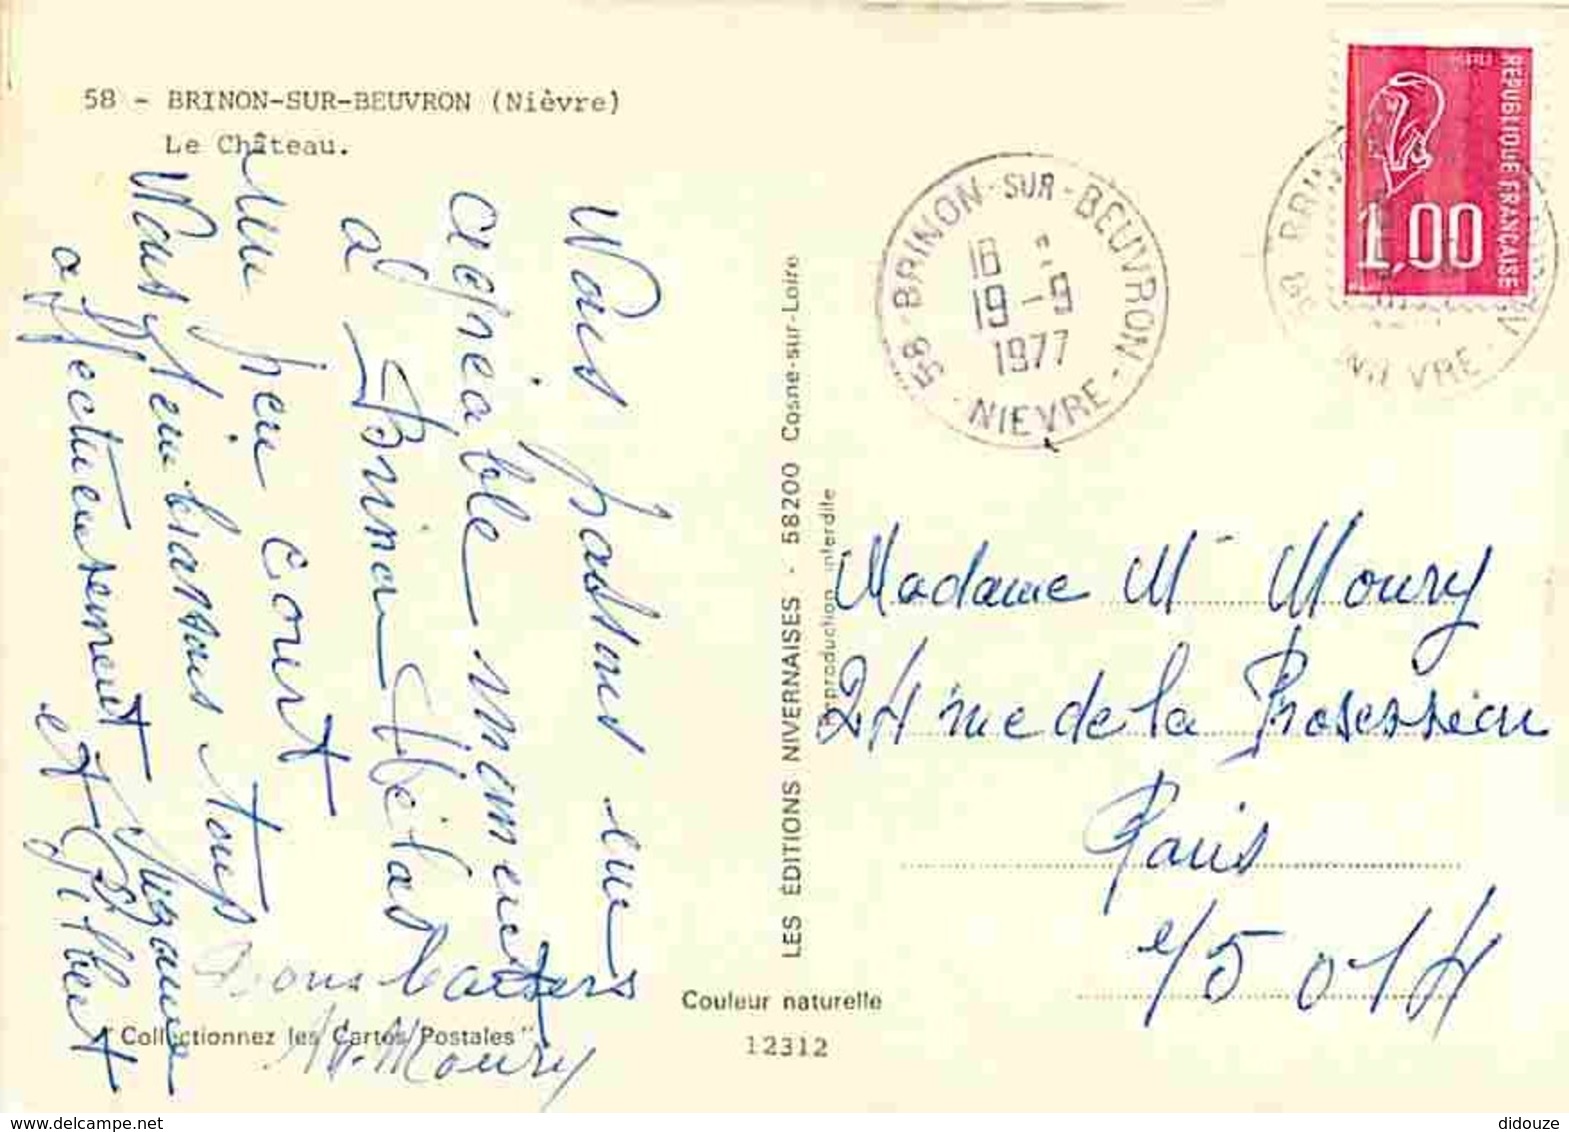 58 - BRINON-SUR-BEUVRON (Nièvre)
Le Château.
Nous passons un
agréable moment
à Brinon hélas
un peu court
Nous t'embrassons tous
affectueusement Suzanne
et Gilbert
Bons baisers
M. Moury
"Collectionnez les Cartes Postales"
LES ÉDITIONS NIVERNAISES - 58200 Cosne-sur-Loire
Reproduction interdite
Couleur naturelle
12312
58 - BRINON-SUR-BEUVRON - NIEVRE
18
19-9
1977
REPUBLIQUE FRANCAISE
1,00
NIEVRE
Madame M Moury
24 rue de la Procession
Paris
75014
didouze